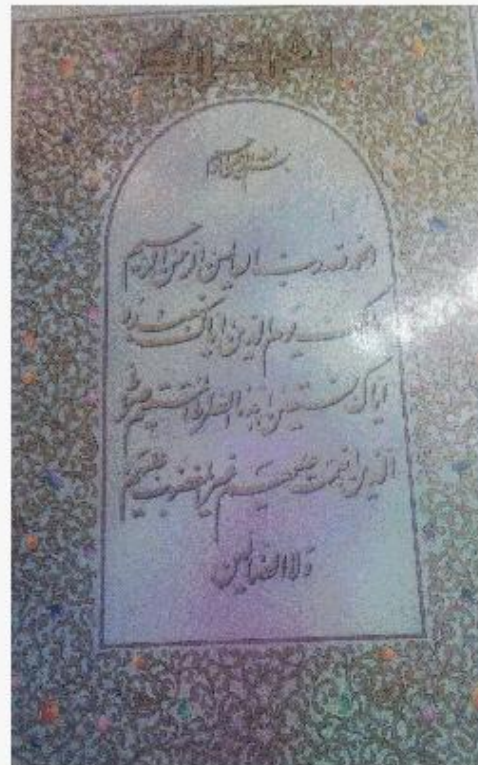 بسم الله الرحمن الرحیم
الحمد لله رب العالمین الرحمن الرحیم
مالک یوم الدین ایاک نعبد و
ایاک نستعین اهدنا الصراط المستقیم صراط
الذین انعمت علیهم غیر المغضوب علیهم
ولا الضالین